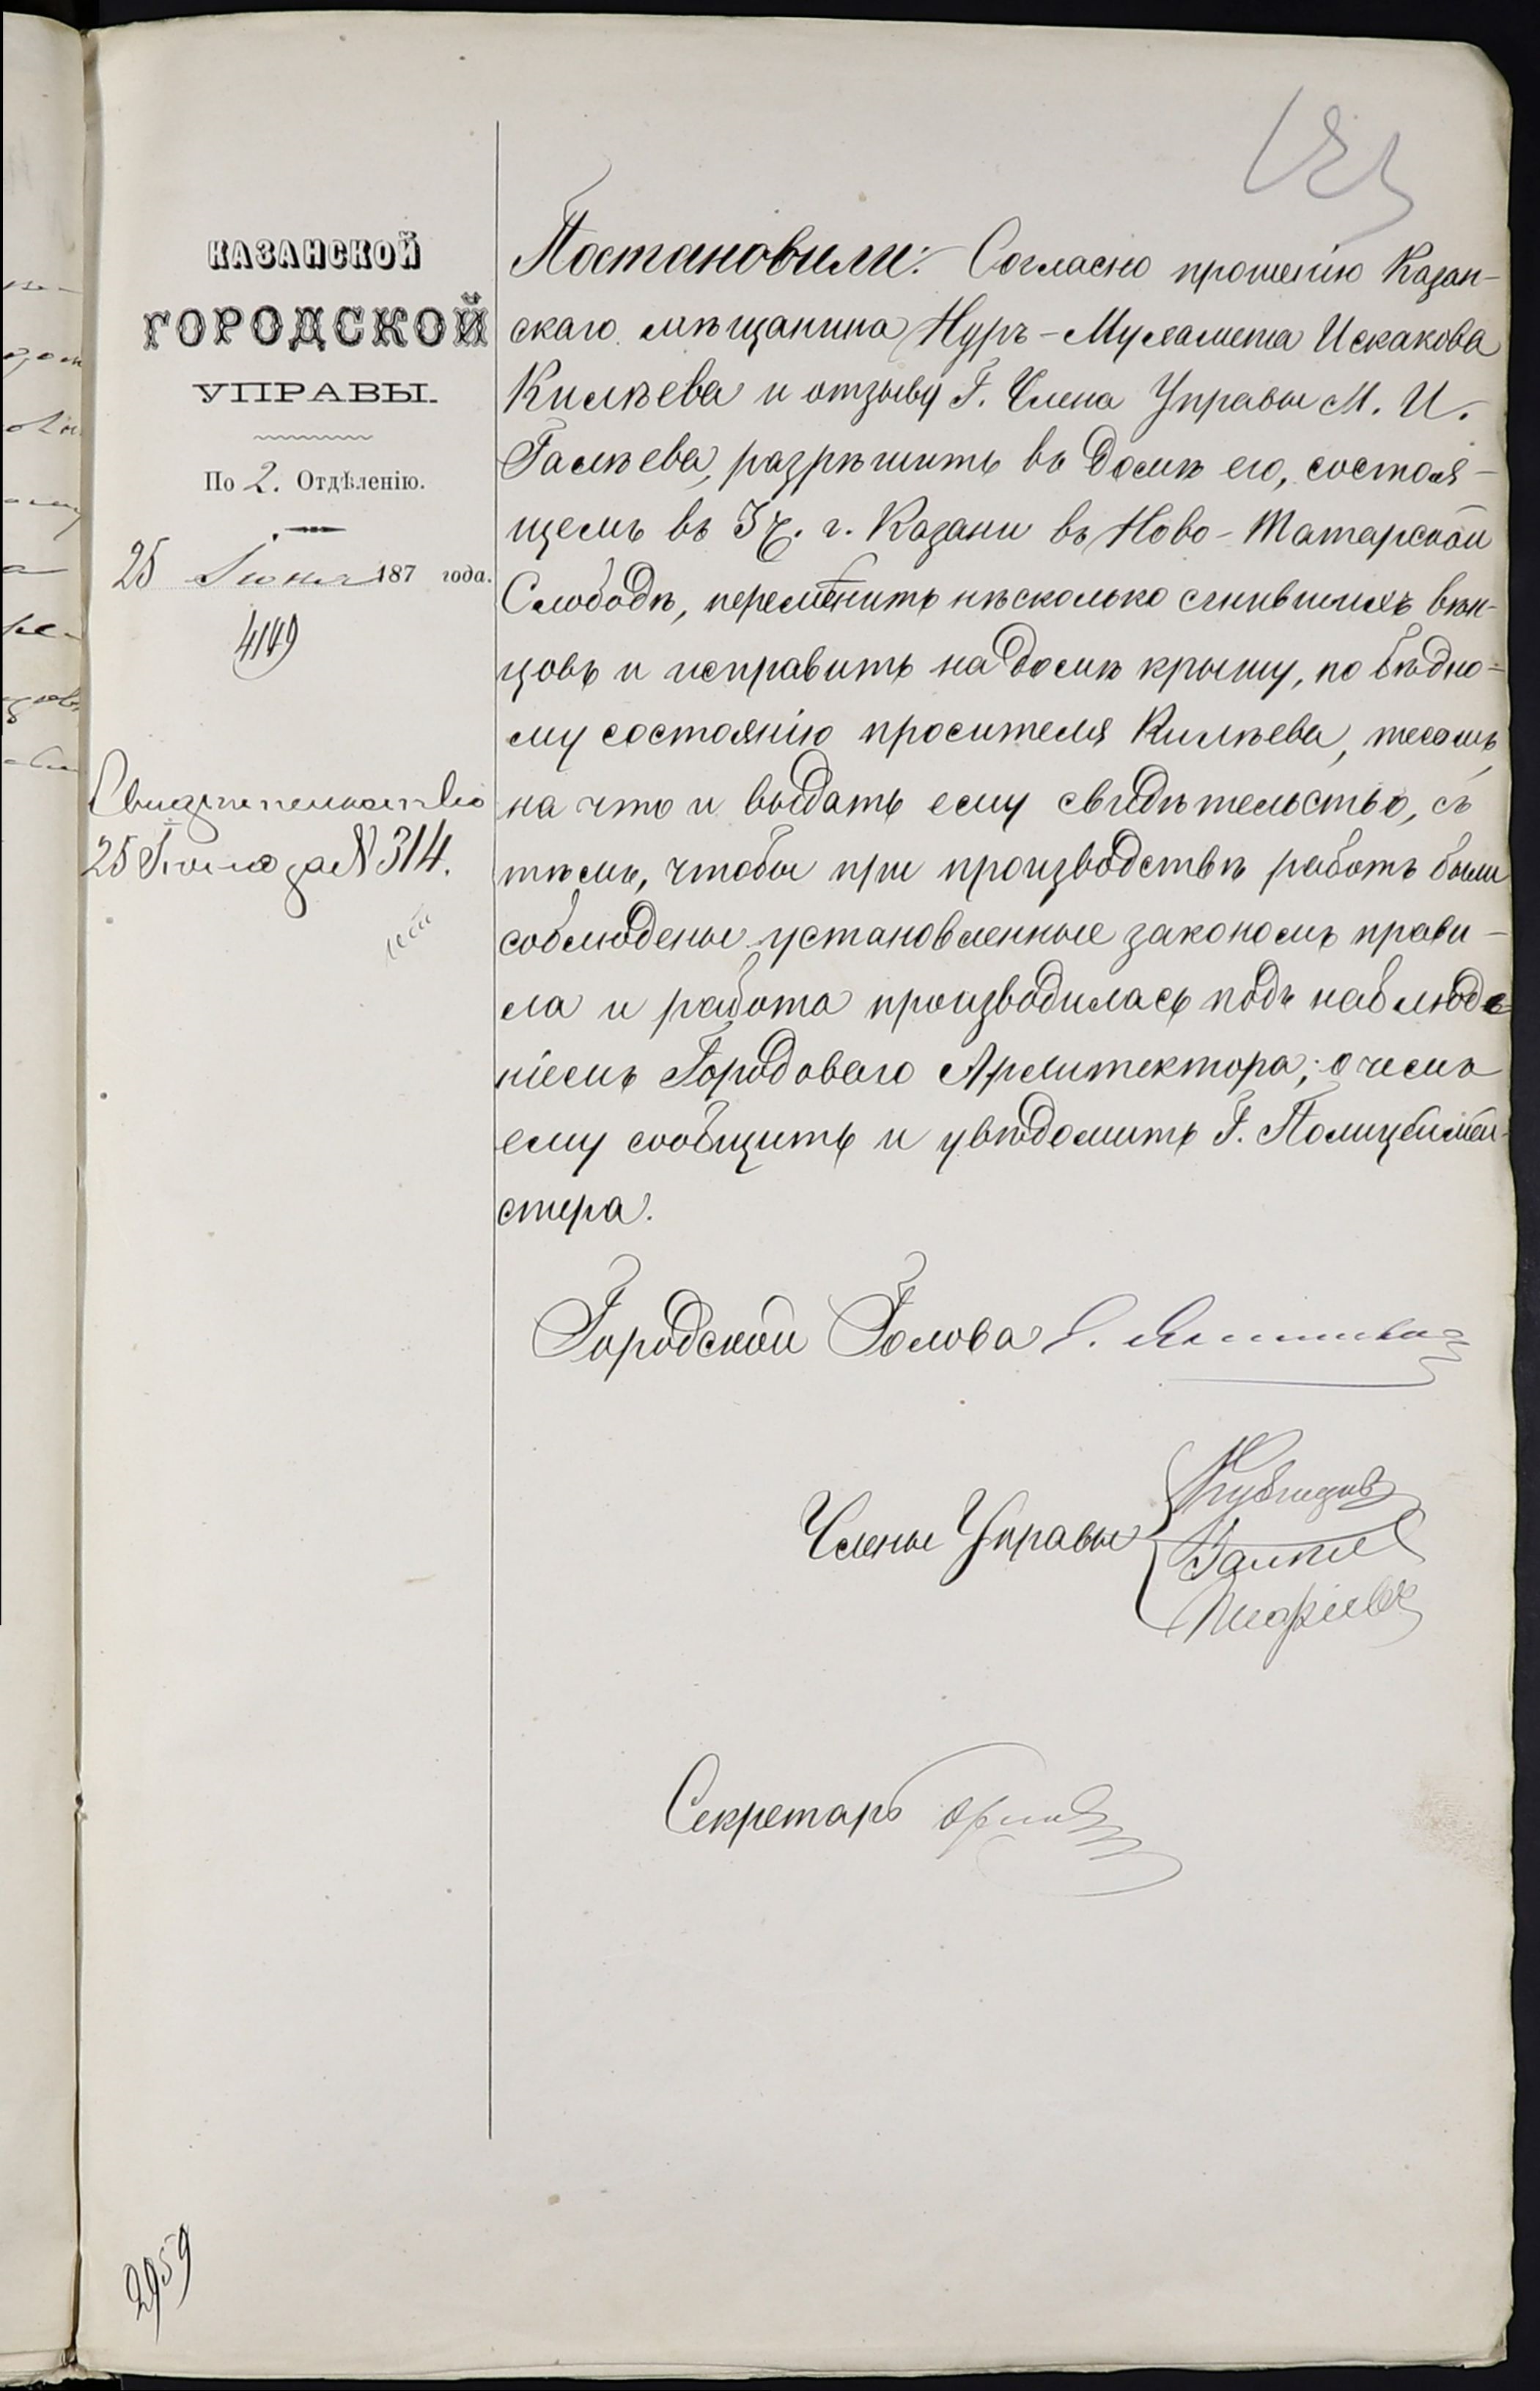 КАЗАНСКОЙ
ГОРОДСКОЙ
УПРАВЫ.
По 2. Отдѣленію.
25 Іюня 187 года.
4149
Свидѣтельство
25 Іюня за № 314.
Постановили: Согласно прошенію Казан-
скаго мѣщанина Нуръ-Мухамета Искакова
Килѣева и отзыву Г. Члена Управы М. И.
Галѣева, разрѣшить въ домѣ его, состоя-
щемъ въ 5 ч. г. Казани въ Ново-Татарской
Слободѣ, перемѣнить нѣсколько сгнившихъ вѣн-
цовъ и исправить на домѣ крышу, по бѣдно-
му состоянію просителя Килѣева, тесомъ,
на что и выдать ему свидѣтельство, съ
тѣмъ, чтобы при производствѣ работъ были
соблюдены установленные закономъ прави-
ла и работа производилась подъ наблюде-
ніемъ Городоваго Архитектора; о чемъ
ему сообщить и увѣдомить Г. Полицеймей-
стера.
Городской Голова
Члены Управы
Секретарь
2959